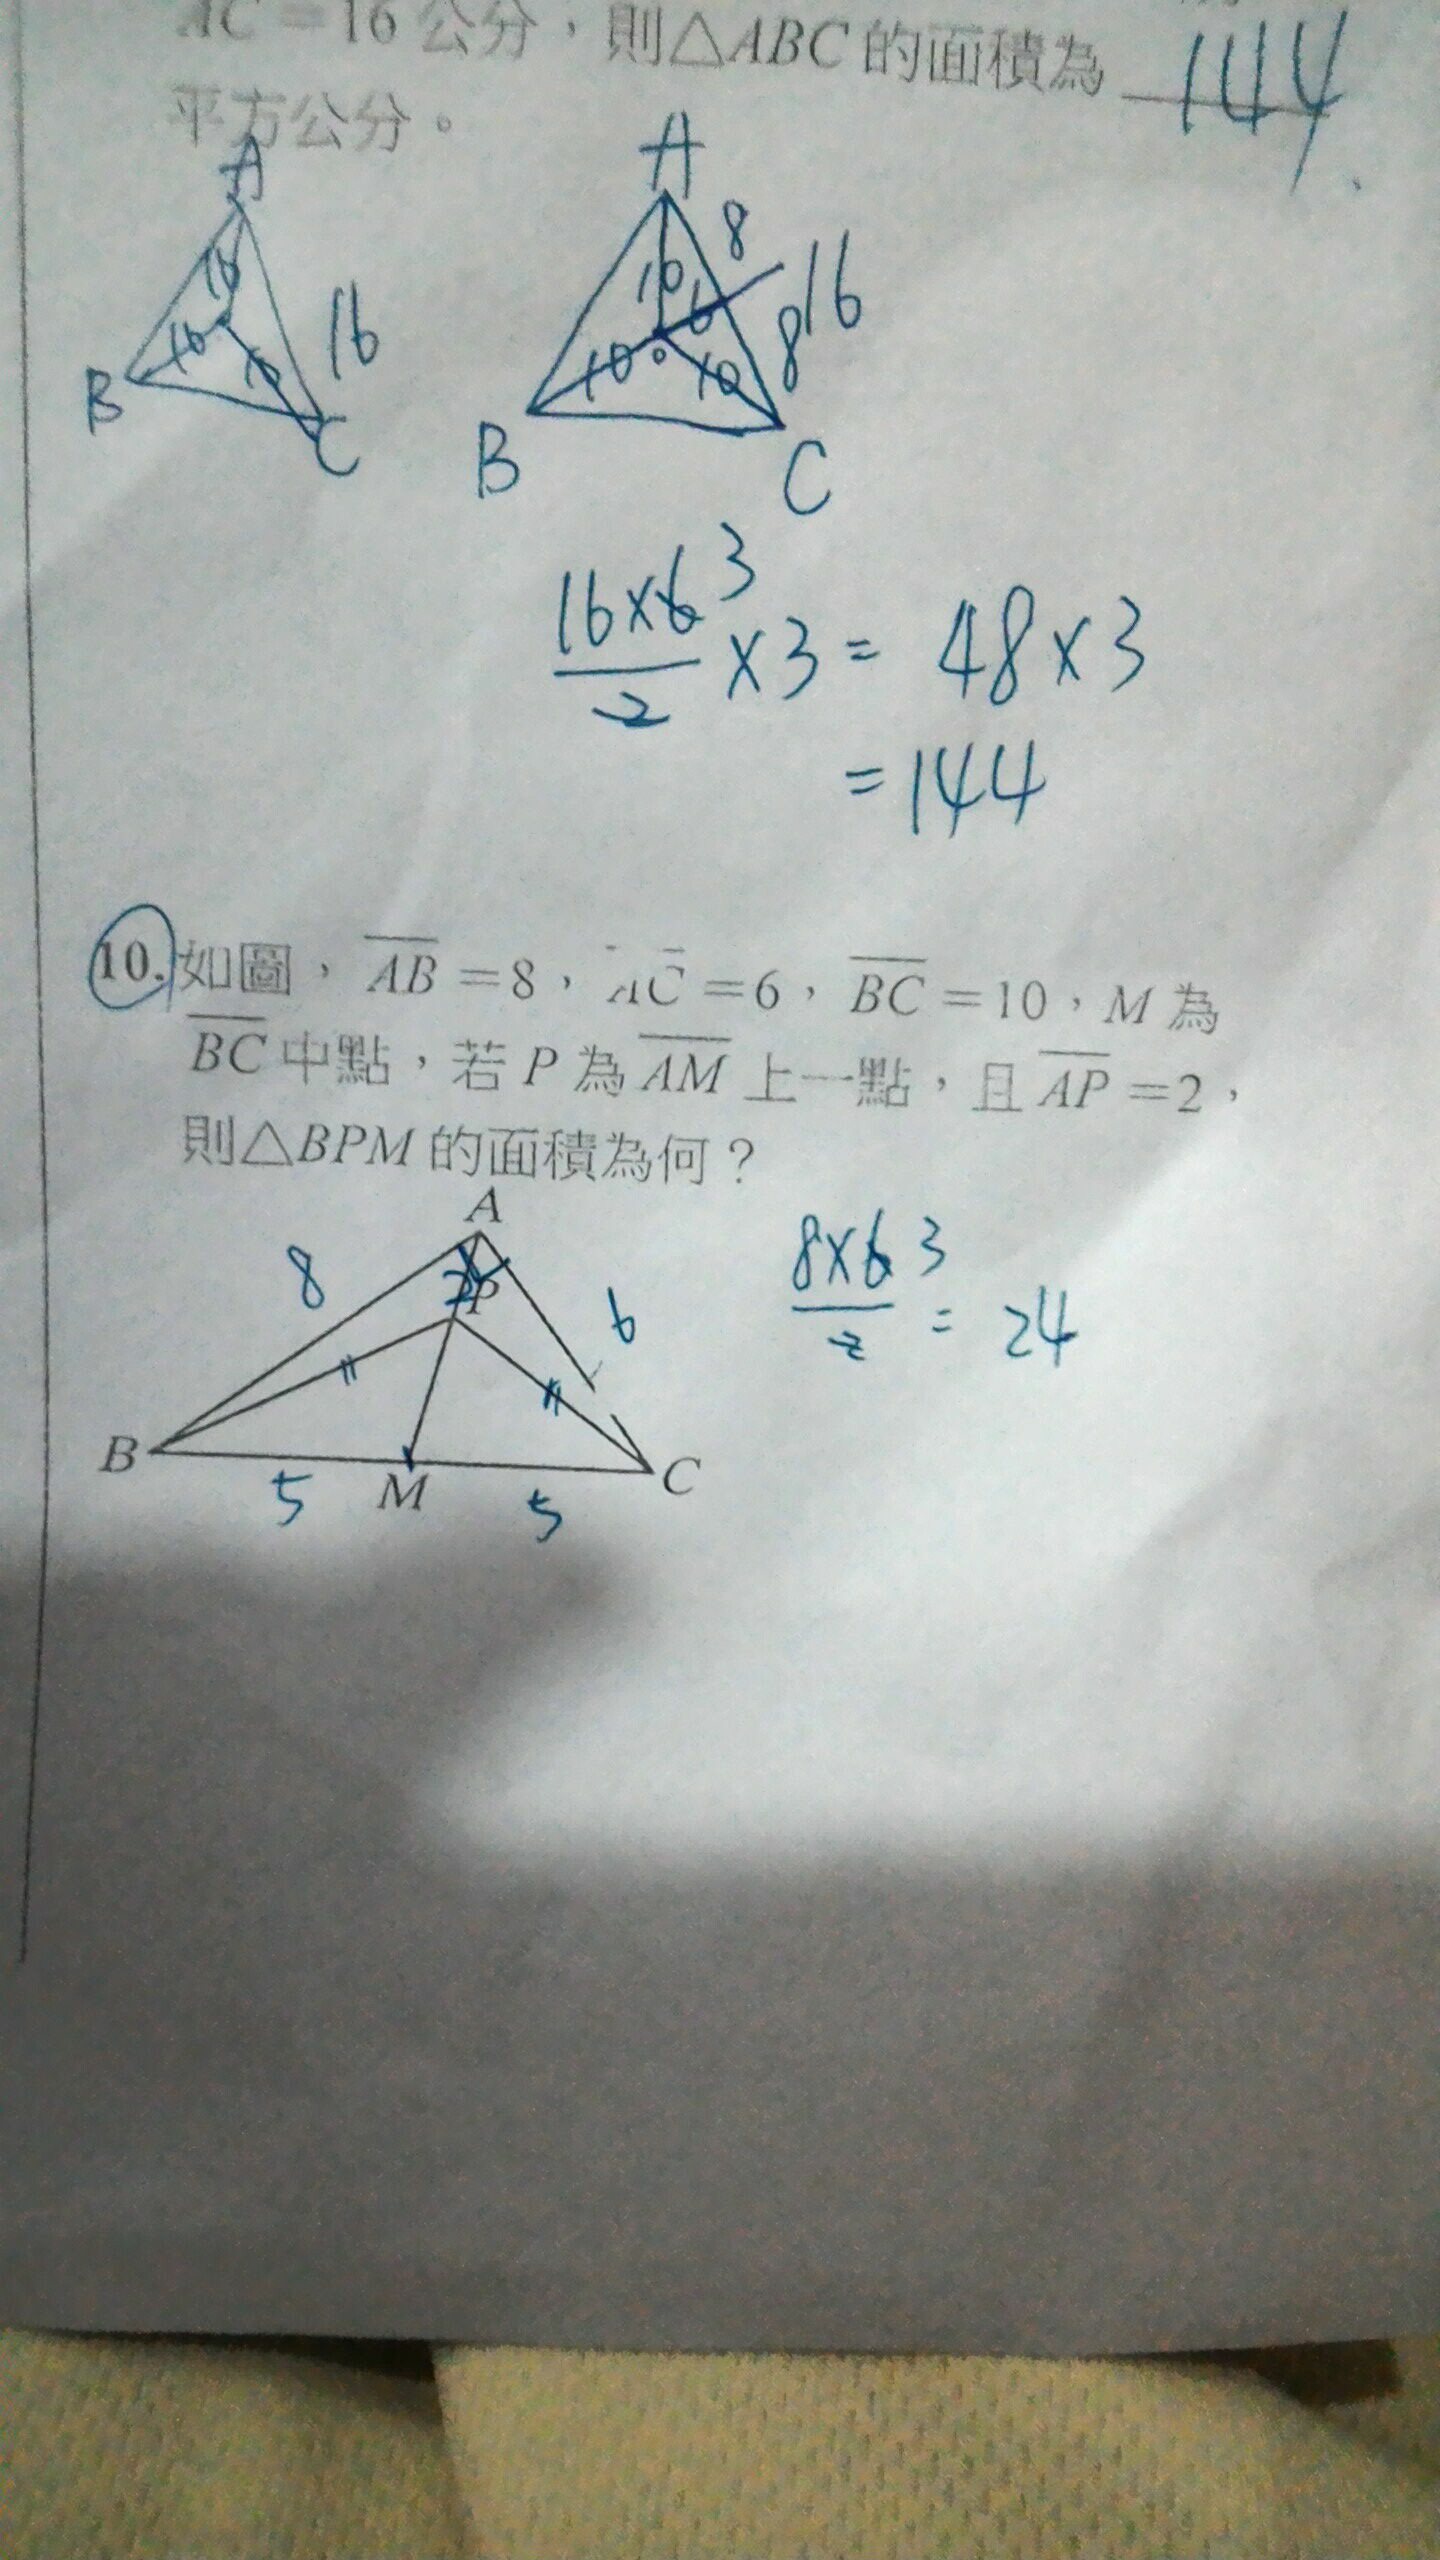 AC = 16 公分，則△ABC 的面積為 144
平方公分。
A
A
8
16
10
6
16
10
10
8
16
10
10
B
C
B
C
16×6 3
/2 ×3 = 48×3
= 144
10. 如圖，AB = 8，AC = 6，BC = 10，M 為
BC 中點，若 P 為 AM 上一點，且 AP = 2，
則△BPM 的面積為何？
A
8
2
P
6
8×6 3
/2 = 24
B
5
M
5
C